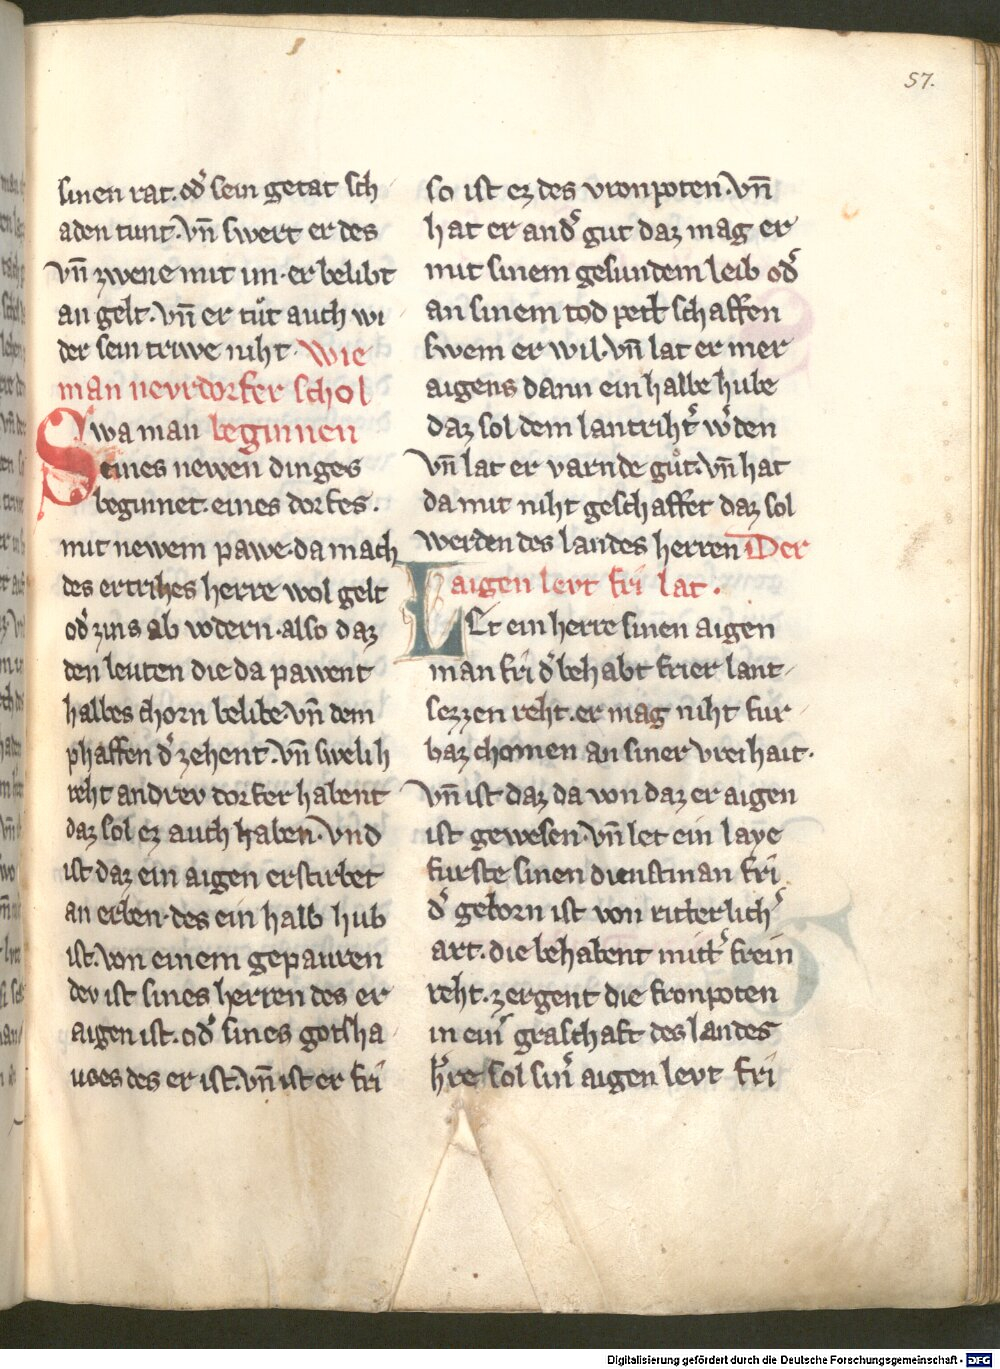 57.
sinen rat. od̕ sein getat sch
aden tunt. vn̄ swert er des
vn̄ zwene mit im. er belibt
an gelt. vn̄ er tuͤt auch wi
der sein triwe niht. wie
man nevrdorfer schol
Swa man beginnen
eines newen dinges
beginnet. eines dorfes.
mit newem pawe. da mach
des ertrihes herre wol gelt
od̕ zins ab vodern. also daz
den leuten die da pawent
halbes chorn belibe. vn̄ dem
phaffen d̕ zehent. vn̄ swelih
reht andrev dorfer habent
daz sol ez auch haben. vnd
ist daz ein aigen erstirbet
an erben. des ein halb hub
ist. von einem gepauren
dev ist sines herren des er
aigen ist. od̕ sines gotsha
uses des er ist. vn̄ ist er fri
so ist ez des vronpoten. vn̄
hat er and̕ gut daz mag er
mit sinem gesundem leib od̕
an sinem tod pett schaffen
swem er wil. vn̄ lat er mer
aigens dann ein halbe hube
daz sol dem lantriht̕ w̕den
vn̄ lat er varnde guͤt. vn̄ hat
da mit niht geschaffet daz sol
werden des landes herren Der
aigen levt fri lat.
LEt ein herre sinen aigen
man fri d̕ behabt frier lant
sezzen reht. er mag niht fur
baz chomen an siner vreihait.
vn̄ ist daz da von daz er aigen
ist gewesen. vn̄ let ein laye
furste sinen dienstman fri
d̕ geborn ist von ritterlich̕
art. die behabent mitt̕ frein
reht. zergent die fronpoten
in ein̕ graschaft des landes
h̕re sol sin̕ aigen levt fri
Digitalisierung gefördert durch die Deutsche Forschungsgemeinschaft - DFG